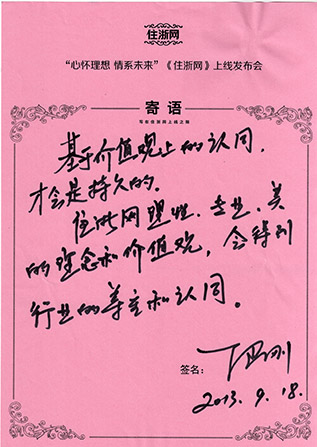 住浙网
“心怀理想 情系未来”《住浙网》上线发布会
寄语
写在住浙网上线之际
基于价值观上的认同，
才会是持久的。
住浙网理性、专业、美
的理念和价值观，会得到
行业的尊重和认同。
签名：
2013. 9. 18.